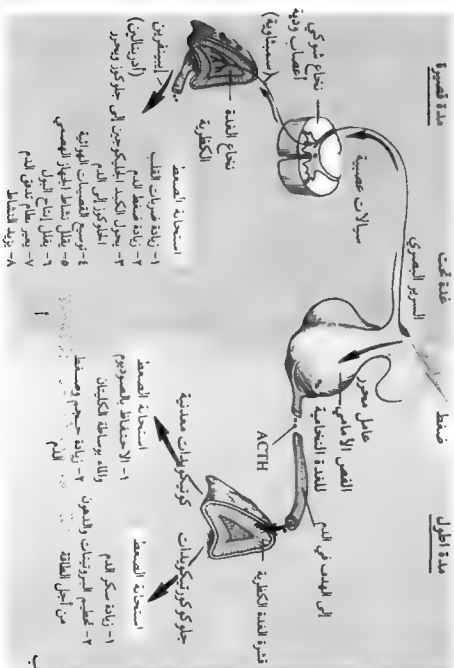 مدة قصيرة
غدة تحت
السرير البصري
ضغط
مدة اطول
نخاع شوكي
أعصاب ودية
(سمبثاوية)
سيالات عصبية
نخاع الغدة
الكظرية
إيبينفرين
(أدرينالين)
استجابة الضغط
١- زيادة ضربات القلب
٢- زيادة ضغط الدم
٣- يحول الكبد الجليكوجين إلى جلوكوز ويحرر
الجلوكوز إلى الدم
٤- توسيع القصبات الهوائية
٥- يقلل نشاط الجهاز الهضمي
٦- يقلل إنتاج البول
٧- يغير نظام تدفق الدم
٨- يزيد النشاط
أ
عامل محرر
الفص الأمامي
للغدة النخامية
ACTH
إلى الهدف في الدم
قشرة الغدة الكظرية
كورتيكويدات معدنية
استجابة الضغط
١- الاحتفاظ بالصوديوم
والماء بوساطة الكليتان
٢- زيادة حجم وضغط
الدم
جلوكوكورتيكويدات
استجابة الضغط
١- زيادة سكر الدم
٢- تحطيم البروتينات والدهون
من أجل الطاقة
ب